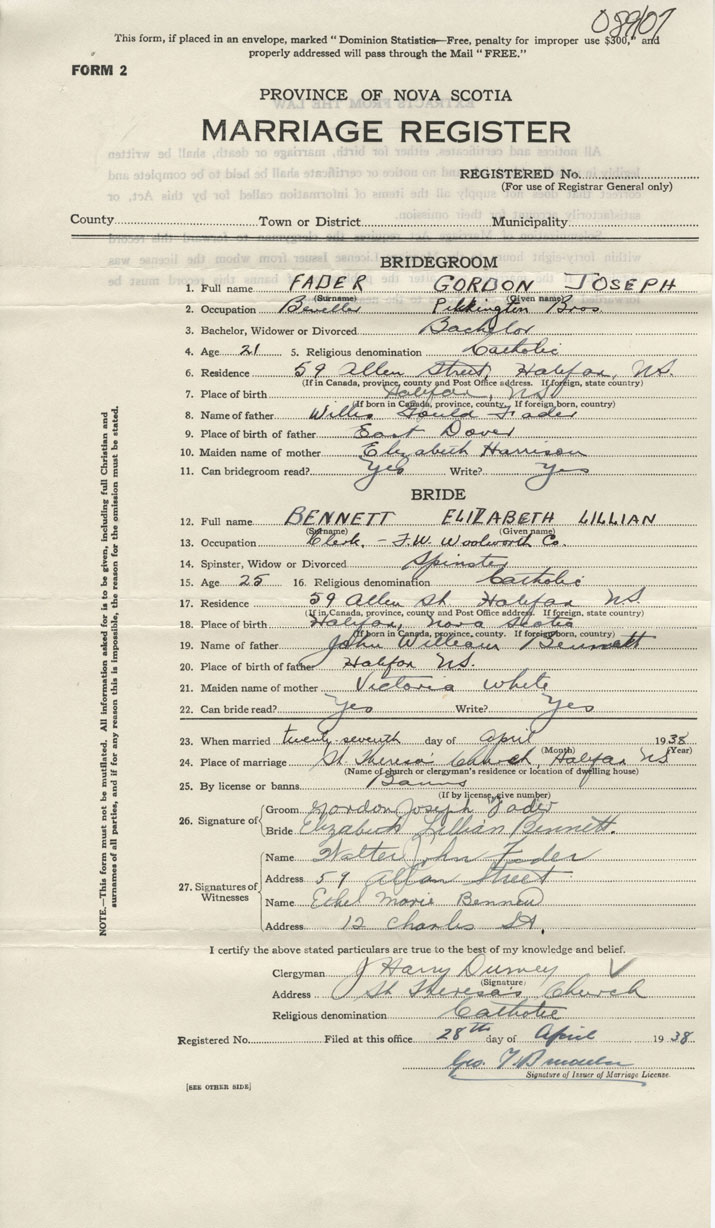 08907
This form, if placed in an envelope, marked " Dominion Statistics—Free, penalty for improper use $300," and
properly addressed will pass through the Mail " FREE."
FORM 2
PROVINCE OF NOVA SCOTIA
MARRIAGE REGISTER
REGISTERED No.
(For use of Registrar General only)
County Town or District Municipality
BRIDEGROOM
1. Full name FADER GORDON JOSEPH
(Surname) (Given name)
2. Occupation Beveller Pilkington Bros.
3. Bachelor, Widower or Divorced Bachelor
4. Age 21 5. Religious denomination Catholic
6. Residence 59 Allen Street, Halifax, NS.
(If in Canada, province, county and Post Office address. If foreign, state country)
7. Place of birth Halifax, NS
(If born in Canada, province, county. If foreign born, country)
8. Name of father Willis Gould Fader
9. Place of birth of father East Dover
10. Maiden name of mother Elizabeth Harrison
11. Can bridegroom read? Yes Write? Yes
BRIDE
12. Full name BENNETT ELIZABETH LILLIAN
(Surname) (Given name)
13. Occupation Clerk. - F.W. Woolworth Co.
14. Spinster, Widow or Divorced Spinster
15. Age 25 16. Religious denomination Catholic
17. Residence 59 Allen St Halifax NS
(If in Canada, province, county and Post Office address. If foreign, state country)
18. Place of birth Halifax, Nova Scotia
(If born in Canada, province, county. If foreign born, country)
19. Name of father John William Bennett
20. Place of birth of father Halifax NS.
21. Maiden name of mother Victoria White
22. Can bride read? Yes Write? Yes
23. When married twenty seventh day of April 1938
(Month) (Year)
24. Place of marriage St Theresa's Church, Halifax NS
(Name of church or clergyman's residence or location of dwelling house)
25. By license or banns Banns
(If by license, give number)
26. Signature of Groom Gordon Joseph Fader
Bride Elizabeth Lillian Bennett.
27. Signatures of Witnesses
Name Walter John Fader
Address 59 Allan Street
Name Ethel Marie Bennett
Address 12 Charles St.
I certify the above stated particulars are true to the best of my knowledge and belief.
Clergyman J Harry Durney
(Signature)
Address St Theresa's Church
Religious denomination Catholic
Registered No. Filed at this office 28th day of April 1938
Geo.
Signature of Issuer of Marriage License
[SEE OTHER SIDE]
NOTE.—This form must not be mutilated. All information asked for is to be given, including full Christian and
surnames of all parties, and if for any reason this is impossible, the reason for the omission must be stated.